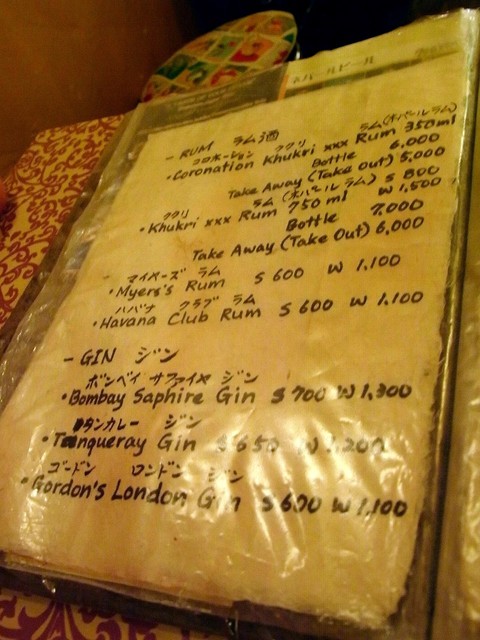 ネパールビール
- RUM ラム酒
コロネーション ククリ ラム(ネパールラム)
• Coronation Khukri xxx Rum 350ml
Bottle 6,000
Take Away (Take out) 5,000
ククリ ラム (ネパールラム) S 800
• Khukri xxx Rum 750 ml W 1,500
Bottle 7,000
Take Away (Take Out) 6,000
マイヤーズ ラム
• Myers's Rum S 600 W 1,100
ハバナ クラブ ラム
• Havana Club Rum S 600 W 1,100
- GIN ジン
ボンベイ サファイヤ ジン
• Bombay Saphire Gin S 700 W 1,300
タンカレー ジン
• Tanqueray Gin S 650 W 1,200
ゴードン ロンドン ジン
• Gordon's London Gin S 600 W 1,100